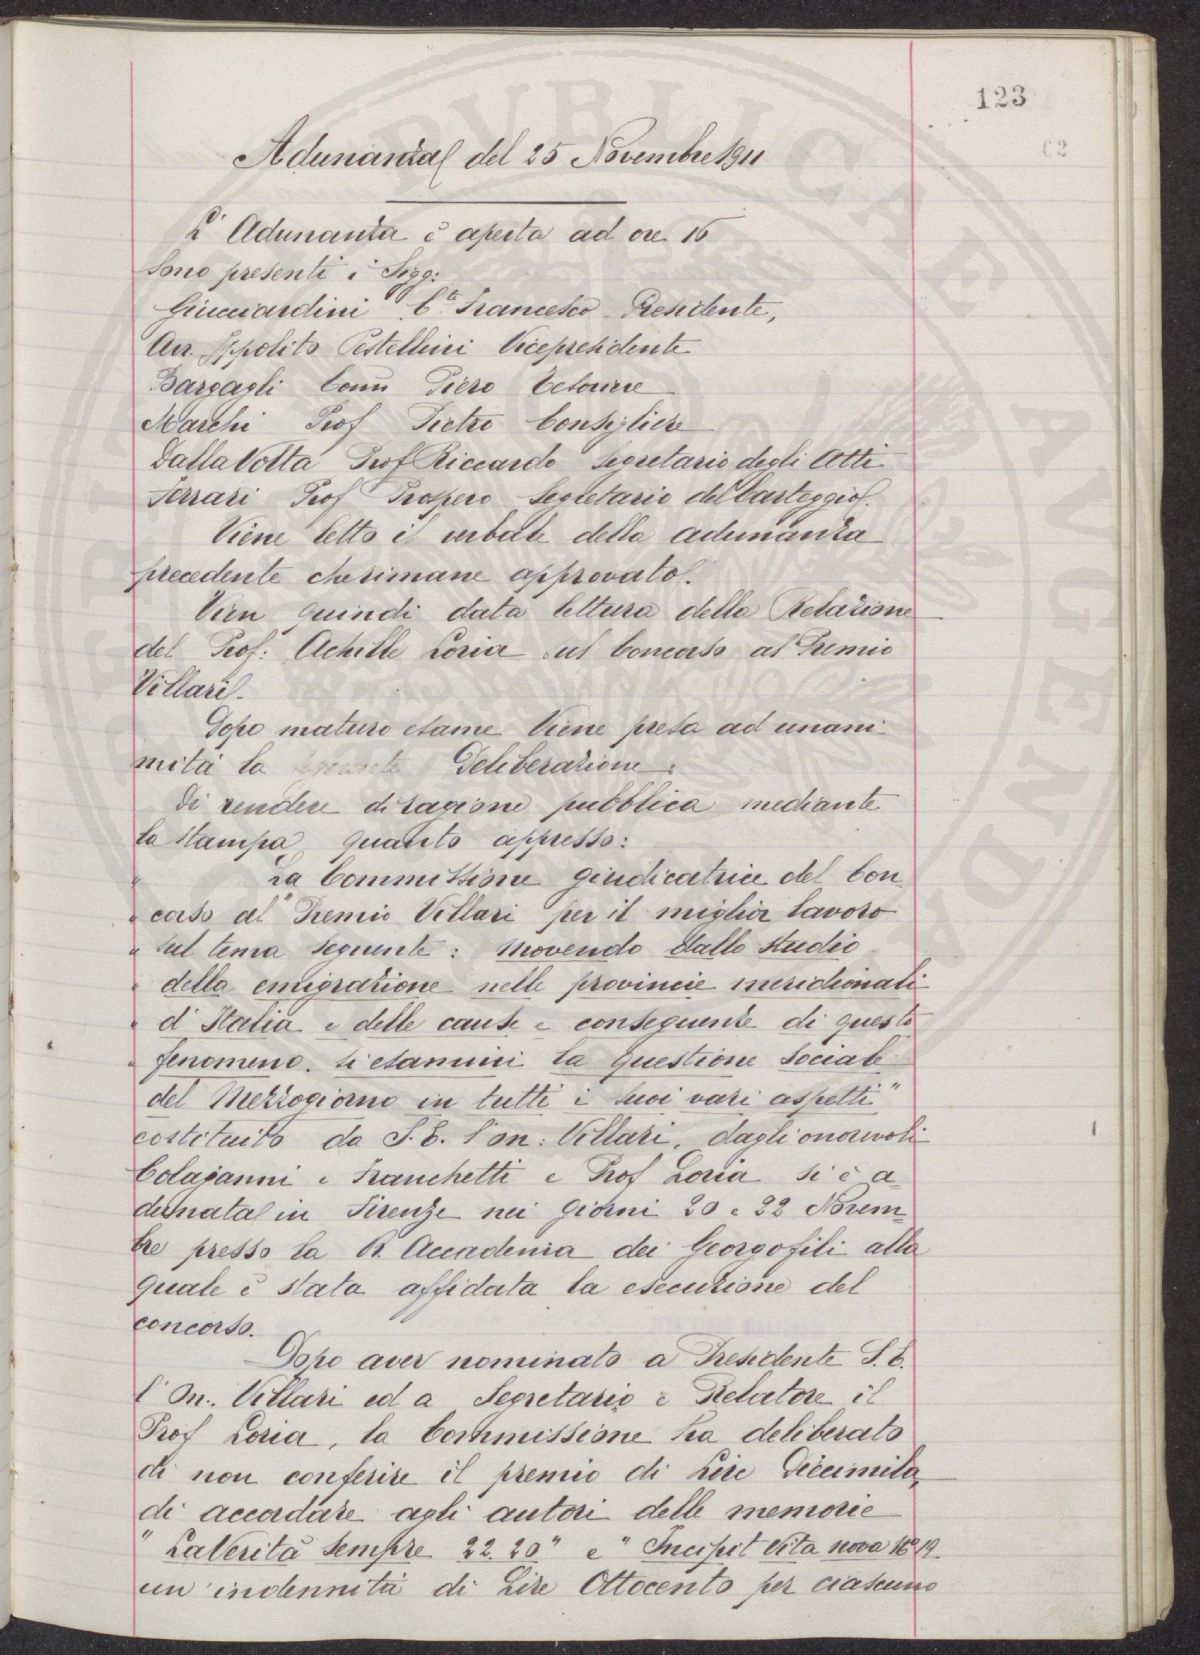 123
62
Adunanza del 25 Novembre 1911
L'Adunanza è aperta ad ore 16
Sono presenti i Sigg:
Guicciardini Cte Francesco Presidente,
Avv. Ippolito Pestellini Vicepresidente
Bargagli Comm Piero Tesoriere
Marchi Prof Pietro Consigliere
Dalla Volta Prof Riccardo Segretario degli Atti
Ferrari Prof Prospero Segretario del Carteggio.
Viene letto il verbale della adunanza
precedente che rimane approvato.
Vien quindi data lettura della Relazione
del Prof: Achille Loria sul Concorso al Premio
Villari.
Dopo maturo esame Viene presa ad unani-
mità la seguente Deliberazione:
Di rendere di ragione pubblica mediante
la stampa quanto appresso:
" La Commissione giudicatrice del Con
" corso al Premio Villari per il miglior lavoro
" sul tema seguente: Movendo dallo studio
" della emigrazione nelle provincie meridionali
" d'Italia e delle cause e conseguenze di questo
" fenomeno. si esamini la questione sociale
del Mezzogiorno in tutti i suoi vari aspetti"
costituito da S. E. l'on: Villari, dagli onorevoli
Colajanni e Franchetti e Prof Loria si è a-
dunata in Firenze nei giorni 20 e 22 Novem-
bre presso la R. Accademia dei Georgofili alla
quale è stata affidata la esecuzione del
concorso.
Dopo aver nominato a Presidente S. E.
l'On. Villari ed a Segretario e Relatore il
Prof Loria, la Commissione ha deliberato
di non conferire il premio di Lire Diecimila,
di accordare agli autori delle memorie
" La Verità sempre 22.20" e "Incipit Vita nova No 19
un'indennità di Lire Ottocento per ciascuno